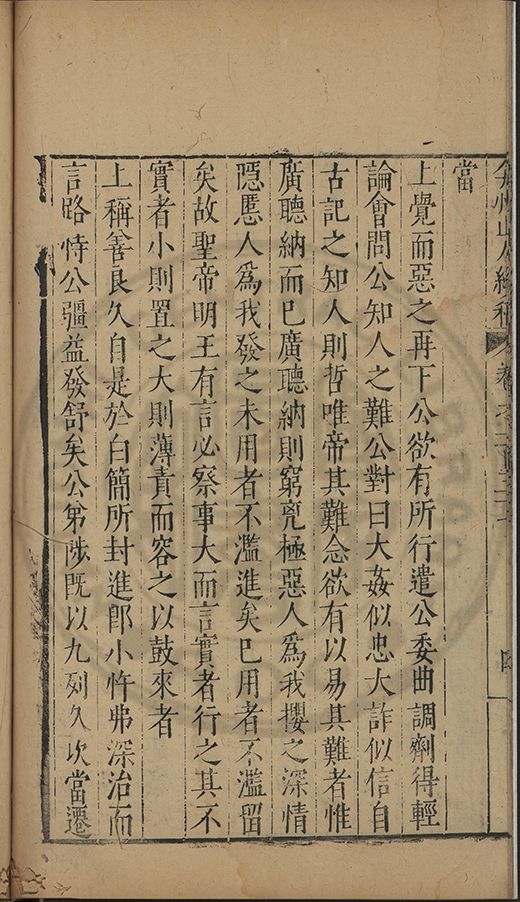 弇州山人續稿 卷之一百三十 四
當
上覺而惡之再下公欲有所行遣公委曲調劑得輕
論會問公知人之難公對曰大姦似忠大詐似信自
古記之知人則哲唯帝其難念欲有以易其難者惟
廣聽納而已廣聽納則窮兇極惡人為我攖之深情
隱慝人為我發之未用者不濫進矣已用者不濫留
矣故聖帝明王有言必察事大而言實者行之其不
實者小則置之大則薄責而容之以鼓來者
上稱善良久自是於白簡所封進卽小忤弗深治而
言路恃公彊益發舒矣公第陟既以九列久次當遷